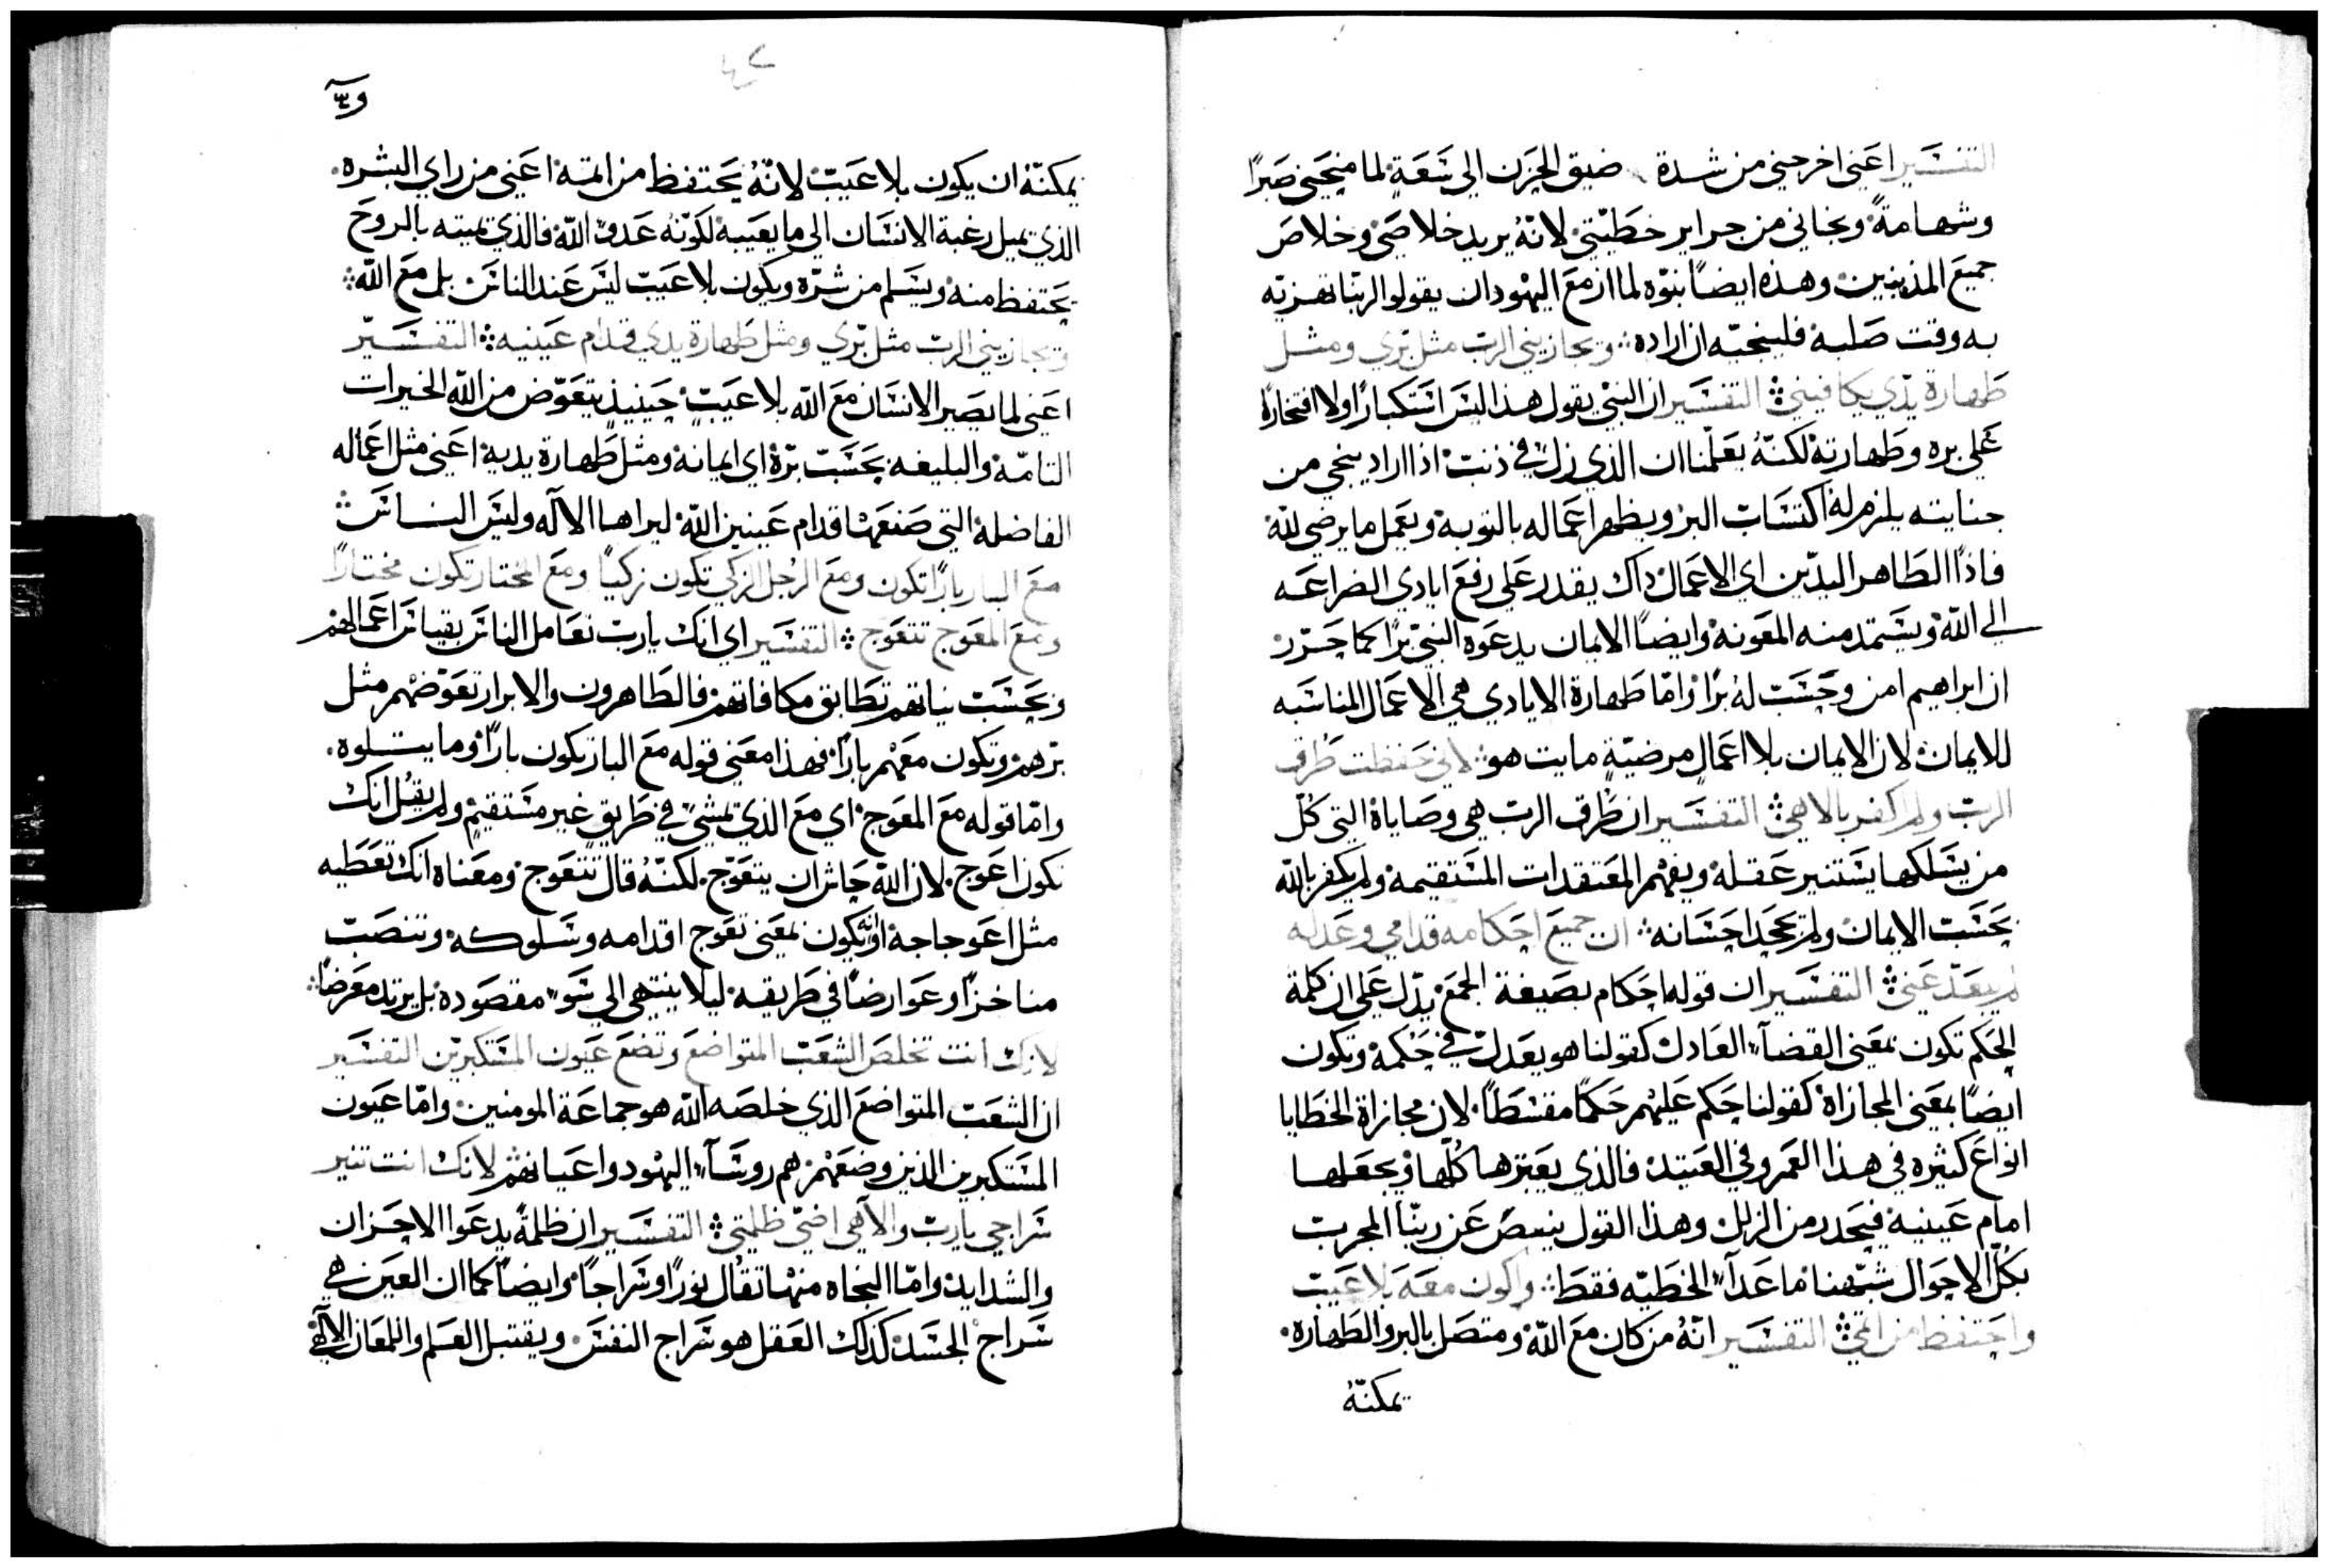 التفسير اعني اخرجني من شدة ضيق الحزن الى سَعَةٍ لما منحني صبرًا
وشهامةً ونجاني من جراير خطيتي لانهُ يريد خلاصي وخلاص
جميع المذنبين وهذه ايضًا نبوّه لما ازمع اليهود ان يقولوا لربنا تهزيه
به وقت صلبه فلينجيّه ان اراده ويجازيني الرب مثل برّي ومثل
طهارة يدّي يكافيني التفسير ان النبي يقول هذا ليس استكبارًا ولا افتخارًا
على بره وطهارته لكنّهُ يعلّمنا ان الذي زل في ذنب اذا اراد ينجي من
جنايته يلزم لهُ اكتساب البر ويطهر اعماله بالتوبه ويعمل ما يرضي لله
فاذًا الطاهر اليدّين اي الاعمال ذاك يقدر على رفع ايادي الضراعه
الى الله ويستمد منه المعونه وايضًا الايمان يدعوه النبي برًا كما حرّر
ان ابراهيم امن وحسب لهُ برًا وامّا طهارة الايادي هي الاعمال المناسبه
للايمان لان الايمان بلا اعمال مرضيّةٍ مايت هو لاني حفظت طُرق
الرب ولم اكفر بالاهي التفسير ان طُرق الرب هي وصاياهُ التي كُل
من يسلكها يستنير عقلهُ ويفهم المعتقدات المستقيمه ولم يكفر بالله
بحسب الايمان ولم يجحد احسانه ان جميع احكامه قدامي وعدله
لم يبعدّ عني التفسير ان قوله احكام بصيغة الجمع يدّل على ان كلمة
الحكم تكون بمعنى القضآء العادل كقولنا هو يعدل في حكمه وتكون
ايضًا بمعنى المجازاة كقولنا حكم عليهم حكمًا مقسطًا لان مجازاة الخطايا
انواع كثيره في هذا العمر وفي العتيد فالذي يعتبرها كلّها ويجعلها
امام عينيه فيحدر من الزلل وهذا القول ينسص عن ربنّا المجرب
بكلّ الاحوال شبهنا ما عدآء الخطيّه فقط واكون معه بلا عيب
واحتفظ من اثمي التفسير انهُ من كان مع الله ومتصل بالبر والطهاره
يمكنّهُ
يمكنّهُ ان يكون بلا عيب لانّهُ يحتفظ من اثمه اعني من راي البشره
الذي يميل رغبة الانسان الى ما يعيبه لكونهُ عدو الله فالذي يميته بالروح
يحتفظ منه ويسلم من شرّه ويكون بلا عيب ليس عند الناس بل مع الله
ويجازيني الرب مثل برّي ومثل طهارة يدي قدام عينيه التفسيّر
اعني لما يصير الانسان مع الله بلا عيب حينيذ يتعوّض من الله الخيرات
التامّه والبليغه بحسب برّهُ اي ايمانه ومثل طهارة يديه اعني مثل اعماله
الفاضله التي صنعها قدام عينين الله ليراها الاله وليس الناس
مع البار بارًا تكون ومع الرجل الزكي تكون زكيًا ومع المختار تكون مختارًا
ومع المعوج تتعوج التفسير اي انك يارب تعامل الناس بقياس اعمالهم
وبحسب نياتهم تطابق مكافاتهم فالطاهرون والابرار تعوّضهم مثل
برهم وتكون معهم بارًا فهذا معنى قوله مع البار تكون بارًا وما يتلوه
وامّا قوله مع المعوج اي مع الذي يمشي في طريق غير مستقيم ولم يقُل انك
تكون اعوج لان الله حاش ان يتعوّج لكنّهُ قال تتعوج ومعناه انك تعطيه
مثل اعوجاجه او انه يكون بمعنى تعوج اقدامه وسلوكه وتنصب
مناخزًا وعوارضًا في طريقه ليلا ينتهي الى سوء مقصوده بل يرتد معرضًا
لانك انت تخلص الشعب المتواضع وتضع عيون المستكبرين التفسير
ان الشعب المتواضع الذي خلصه الله هو جماعة المومنين وامّا عيون
المستكبرين الذين وضعهم هم روسآء اليهود واعيانهم لانك انت تنير
سراجي يارب والاهي اضيّ ظلمتي التفسير ان ظلمةً يدعوا الاحزان
والشدايد وامّا النجاه منها تقال نورًا وسراجًا وايضًا كما ان العين هي
سراج الجسد كذلك العقل هو سراج النفس ويقتبل العلم واللمعان الالهي